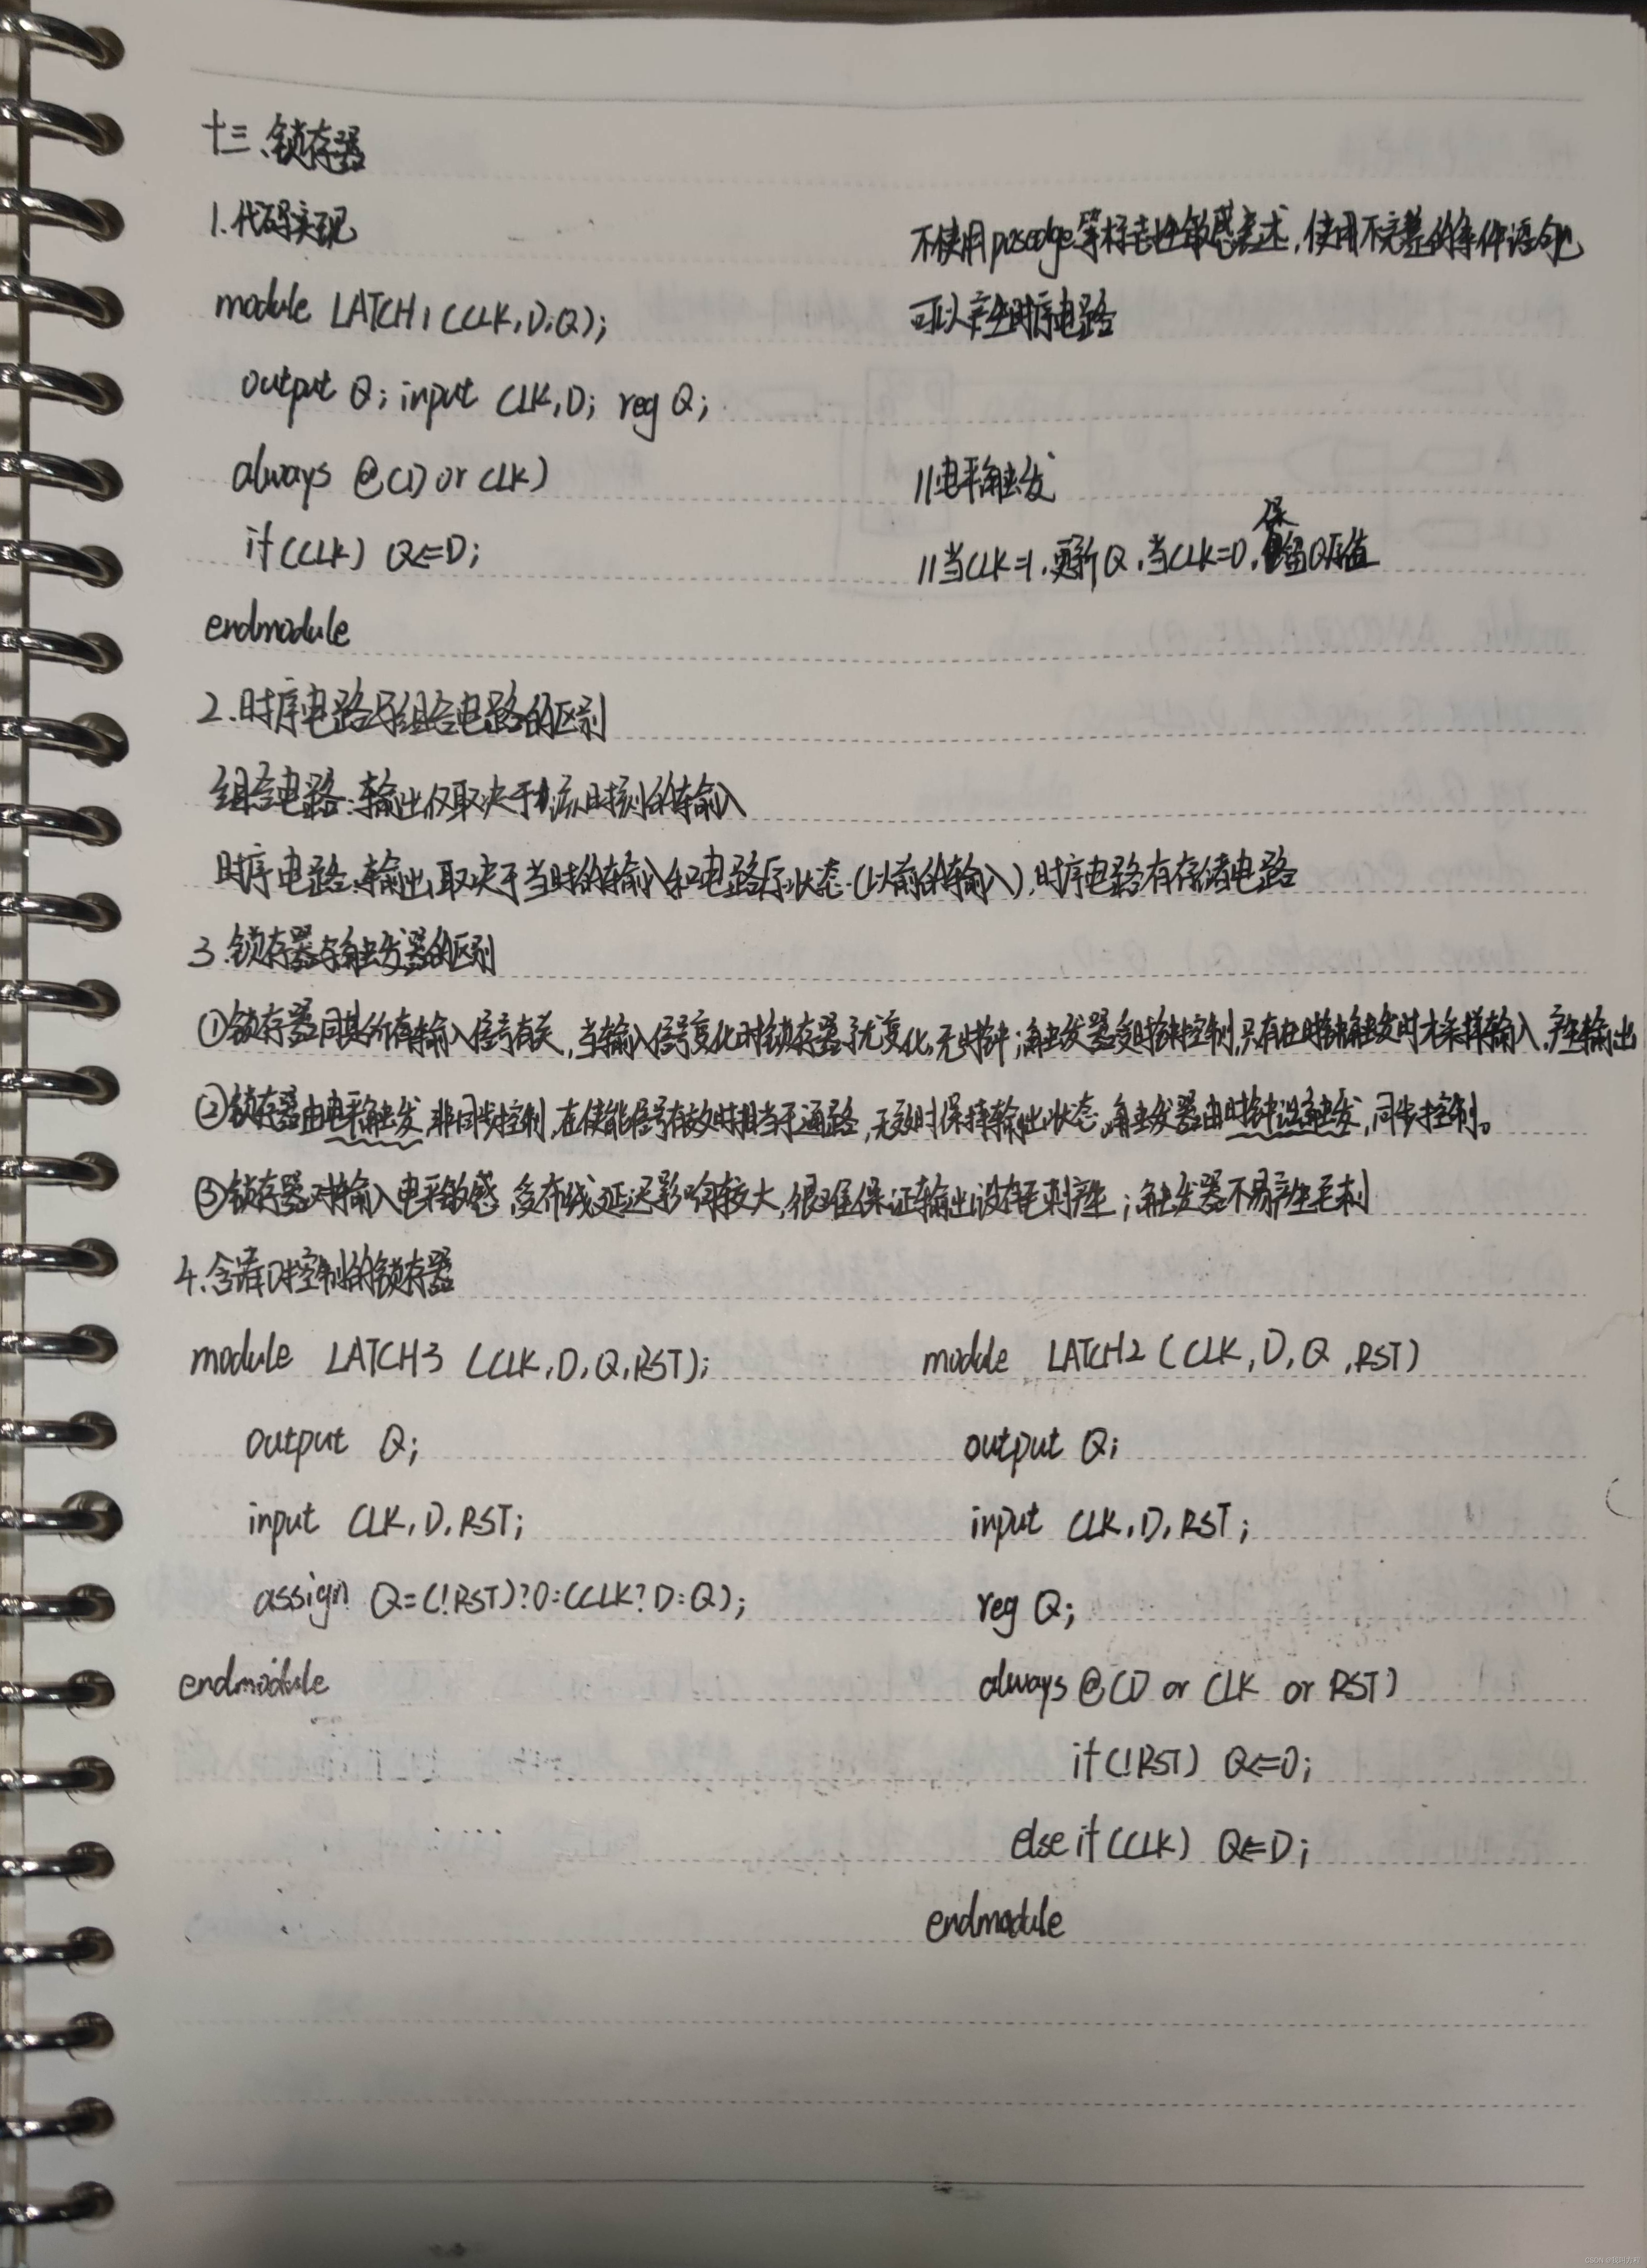 十三、锁存器
1.代码实现
不使用posedge等标志性敏感表述,使用不完整的条件语句
可以产生时序电路
module LATCH1(CLK,D,Q);
output Q; input CLK,D; reg Q;
always @(D or CLK) //电平触发
if(CLK) Q<=D; //当CLK=1,更新Q,当CLK=0,保留Q原值
endmodule
2.时序电路与组合电路的区别
组合电路:输出仅取决于该时刻的输入
时序电路:输出取决于当时的输入和电路原状态(以前的输入),时序电路有存储电路
3.锁存器与触发器的区别
①锁存器同其所有输入信号有关,当输入信号变化时锁存器就变化,无时钟;触发器受时钟控制,只有在时钟触发时才采样输入,产生输出
②锁存器由电平触发,非同步控制,在使能信号有效时相当于通路,无效时保持输出状态。触发器由时钟沿触发,同步控制。
③锁存器对输入电平敏感,受布线延迟影响较大,很难保证输出没有毛刺产生;触发器不易产生毛刺
4.含清0控制的锁存器
module LATCH3 (CLK,D,Q,RST);
output Q;
input CLK,D,RST;
assign Q=(!RST)?0:(CLK?D:Q);
endmodule
module LATCH2(CLK,D,Q,RST)
output Q;
input CLK,D,RST;
reg Q;
always @(D or CLK or RST)
if(!RST) Q<=0;
else if(CLK) Q<=D;
endmodule